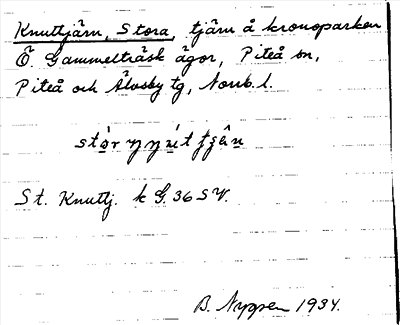 Knuttjärn, Stora, tjärn å kronoparken
Ö. Gammelträsk ägor, Piteå sn,
Piteå och Älvsby tg, Norrb. l.
St. Knuttj. k G. 36 SV.
B. Nygren 1934.